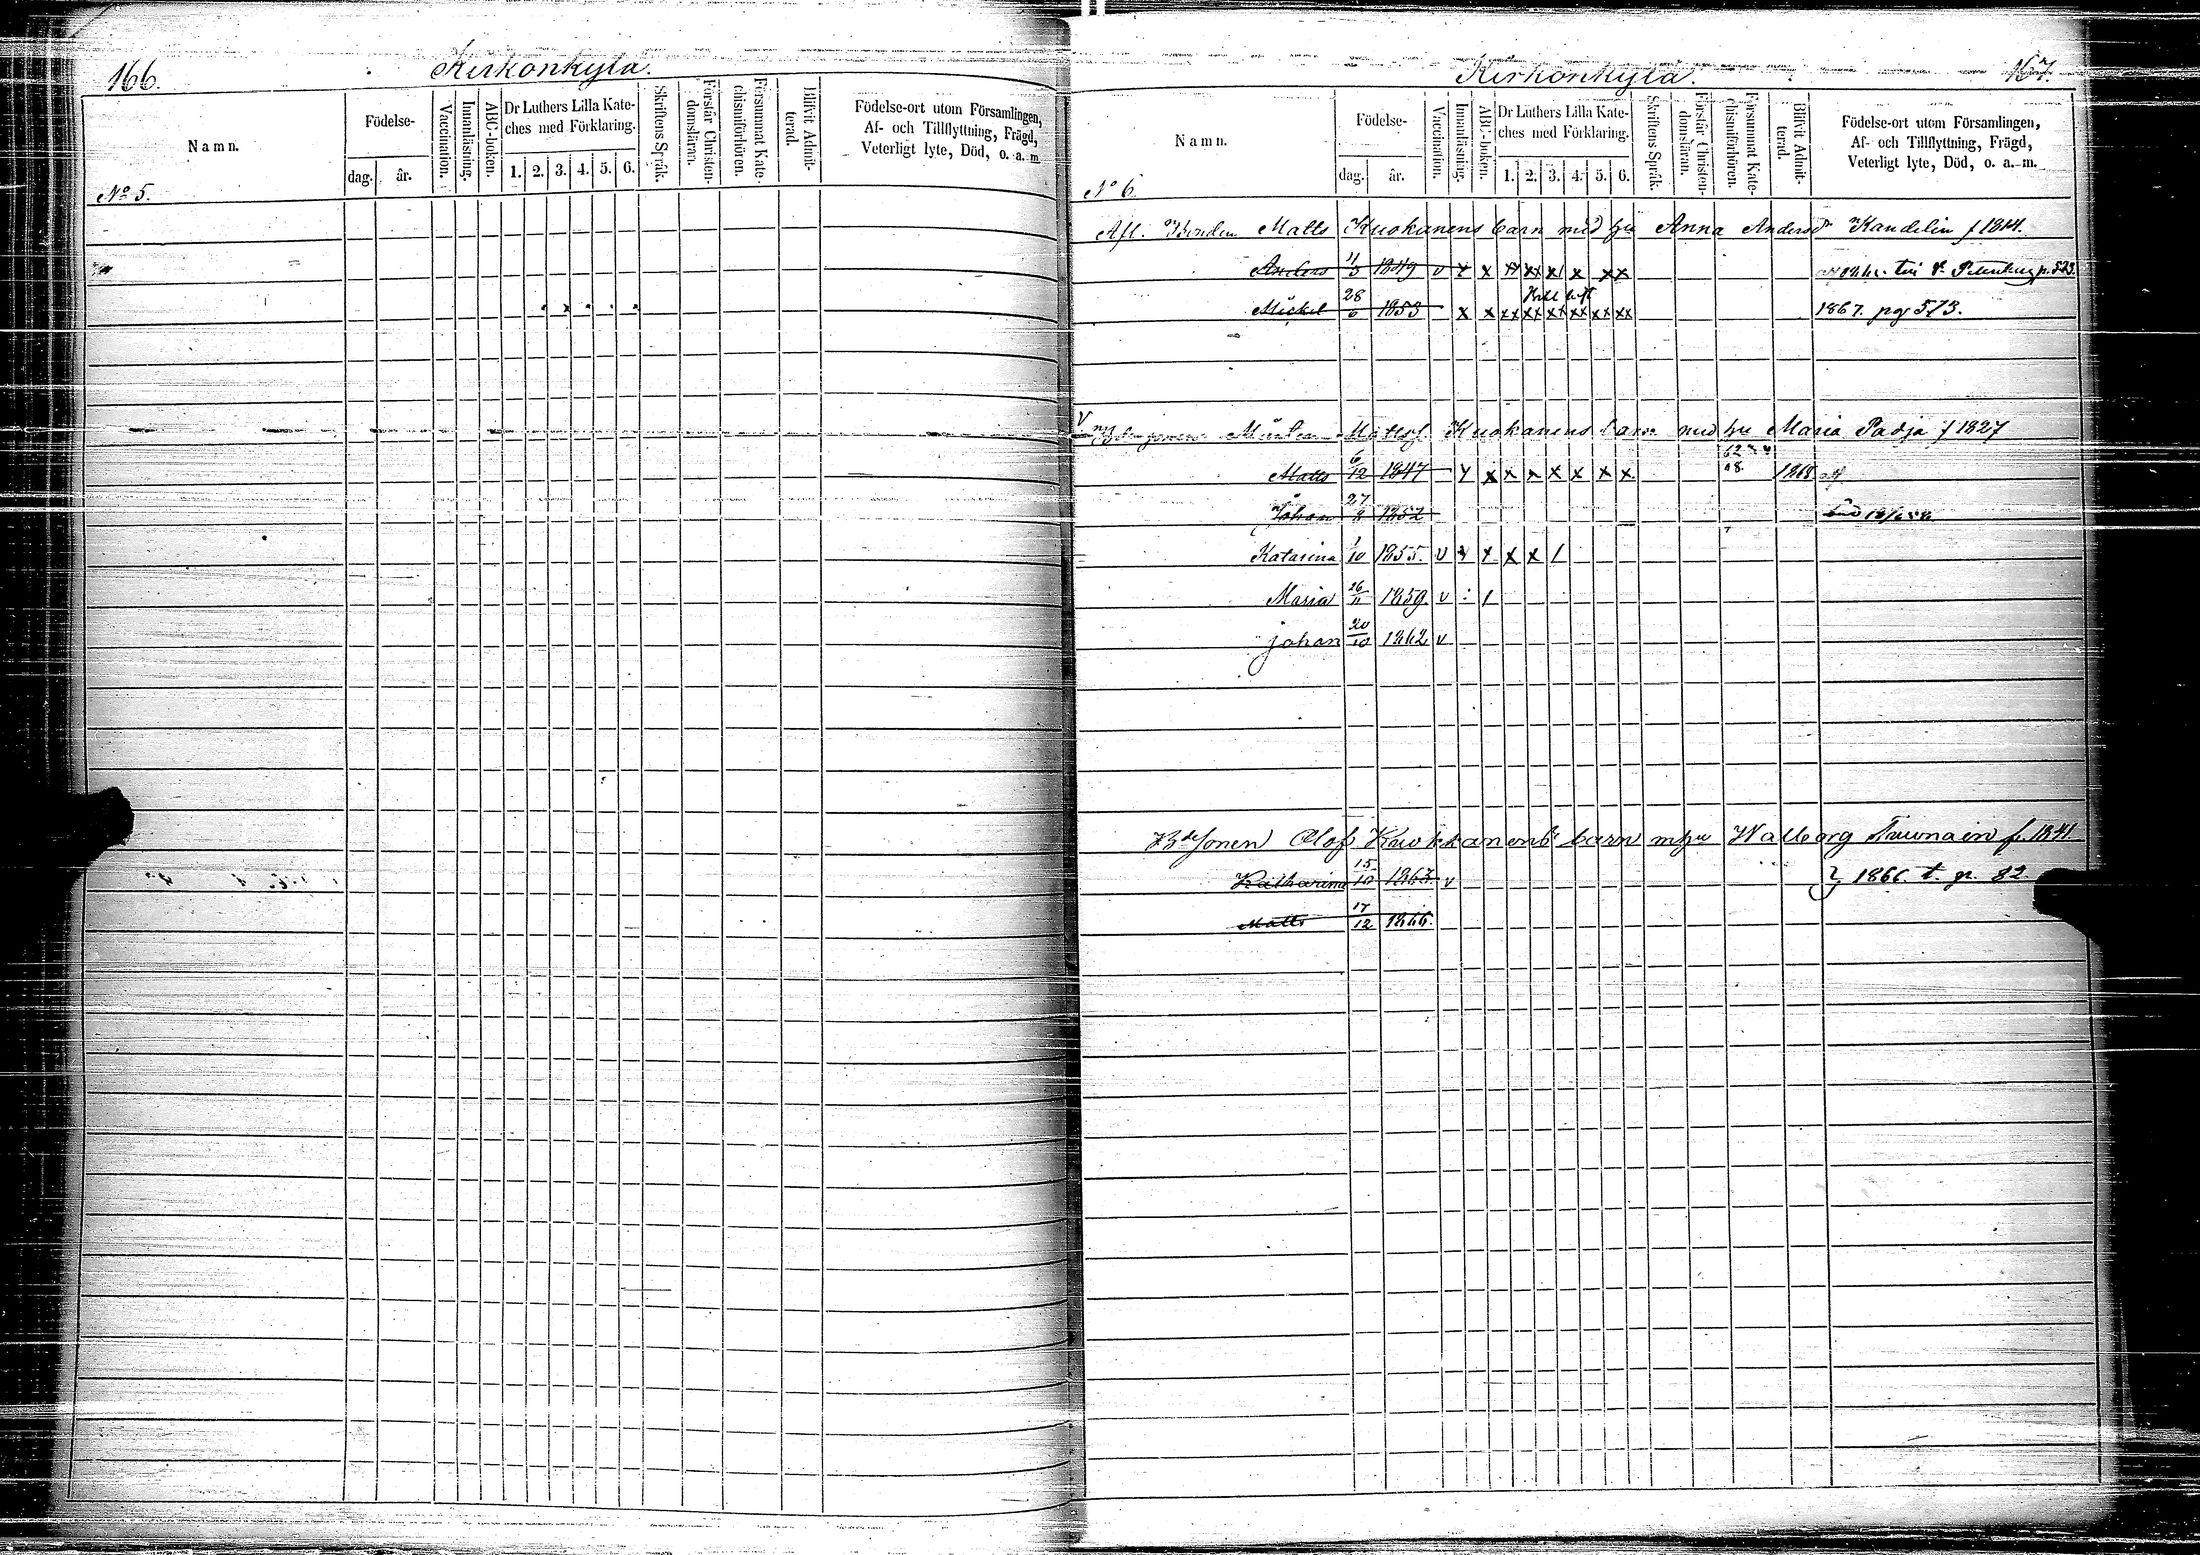 166.
Kirkonkylä.
Namn.
Födelse-
dag. år.
Vaccination.
Innanläsning.
ABC-boken.
Dr Luthers Lilla Kate-
ches med Förklaring.
1. 2. 3. 4. 5. 6.
Skriftens Språk.
Förstår Christen-
domsläran.
Försummat Kate-
chismiförhören.
Blifvit Admit-
terad.
Födelse-ort utom Församlingen,
Af- och Tillflyttning, Frägd,
Veterligt lyte, Död, o. a. m.
No 5.
Kirkonkylä.
167.
Namn.
Födelse-
dag. år.
Vaccination.
Innanläsning.
ABC-boken.
Dr Luthers Lilla Kate-
ches med Förklaring.
1. 2. 3. 4. 5. 6.
Skriftens Språk.
Förstår Christen-
domsläran.
Försummat Kate-
chismiförhören.
Blifvit Admit-
terad.
Födelse-ort utom Församlingen,
Af- och Tillflyttning, Frägd,
Veterligt lyte, Död, o. a. m.
No 6.
Afl. Bonden Matts Kuokanens barn med hu Anna Andersdr Kandelin f 1814.
Anders 11/3 1849 v x x xx xx x x xx till St. Petersburg p. 573.
Mickel 28/6 1853 x x xx xx xx xx xx xx 1867. pg 573.
Matts Kuokanens barn med hu Maria Padja f 1827
Matts 6/12 1847 x x x x x x x x 1868
Johan 27 1852
Katarina 1/10 1855. v x x x x /
Maria 26/11 1859. v : /
Johan 20/10 1862 v
Bdesonen Olof Kuokkanens barn m hu Walborg f. 1841
Katharina 15/10 1863. v } 1866. t. p. 82.
Matts 17/12 1866.